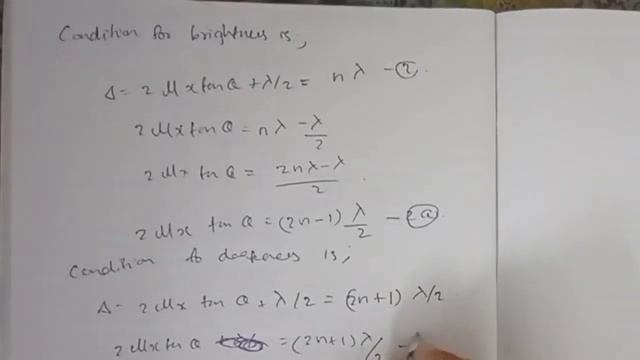 Condition for brightness is,
Δ = 2 μx tan θ + λ/2 = nλ - ②.
2 μx tan θ = nλ - λ/2
2 μx tan θ = 2nλ - λ / 2
2 μx tan θ = (2n - 1) λ/2 - 2a
Condition for darkness is;
Δ = 2 μx tan θ + λ/2 = (2n+1) λ/2
2 μx tan θ = (2n+1) λ/2 -